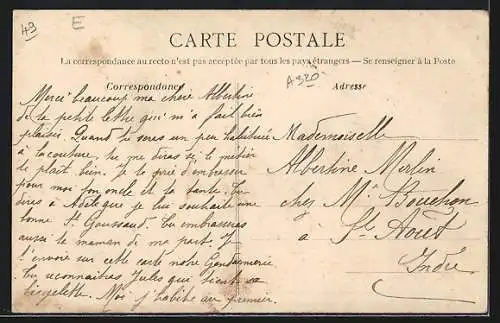 49
E
CARTE POSTALE
La correspondance au recto n'est pas acceptée par tous les pays étrangers — Se renseigner à la Poste
A320
Correspondance
Adresse
Merci beaucoup ma chère Albertine
de ta petite lettre qui m'a fait bien
plaisir. Quand tu seras un peu habituée
à la couture, tu me diras si le métier
te plait bien. Je te prie d'embrasser
pour moi ton oncle et ta tante. Tu
diras à que je lui souhaite une
bonne St Goussaud. Tu embrasseras
aussi ta maman de ma part. J
t'envoie sur cette carte notre Gendarmerie
Tu reconnaitras Jules qui tient sa
bicyclette. Moi j'habite au premier.
Mademoiselle
Albertine Merlin
chez Mr Bouchon
à St Août
Indre